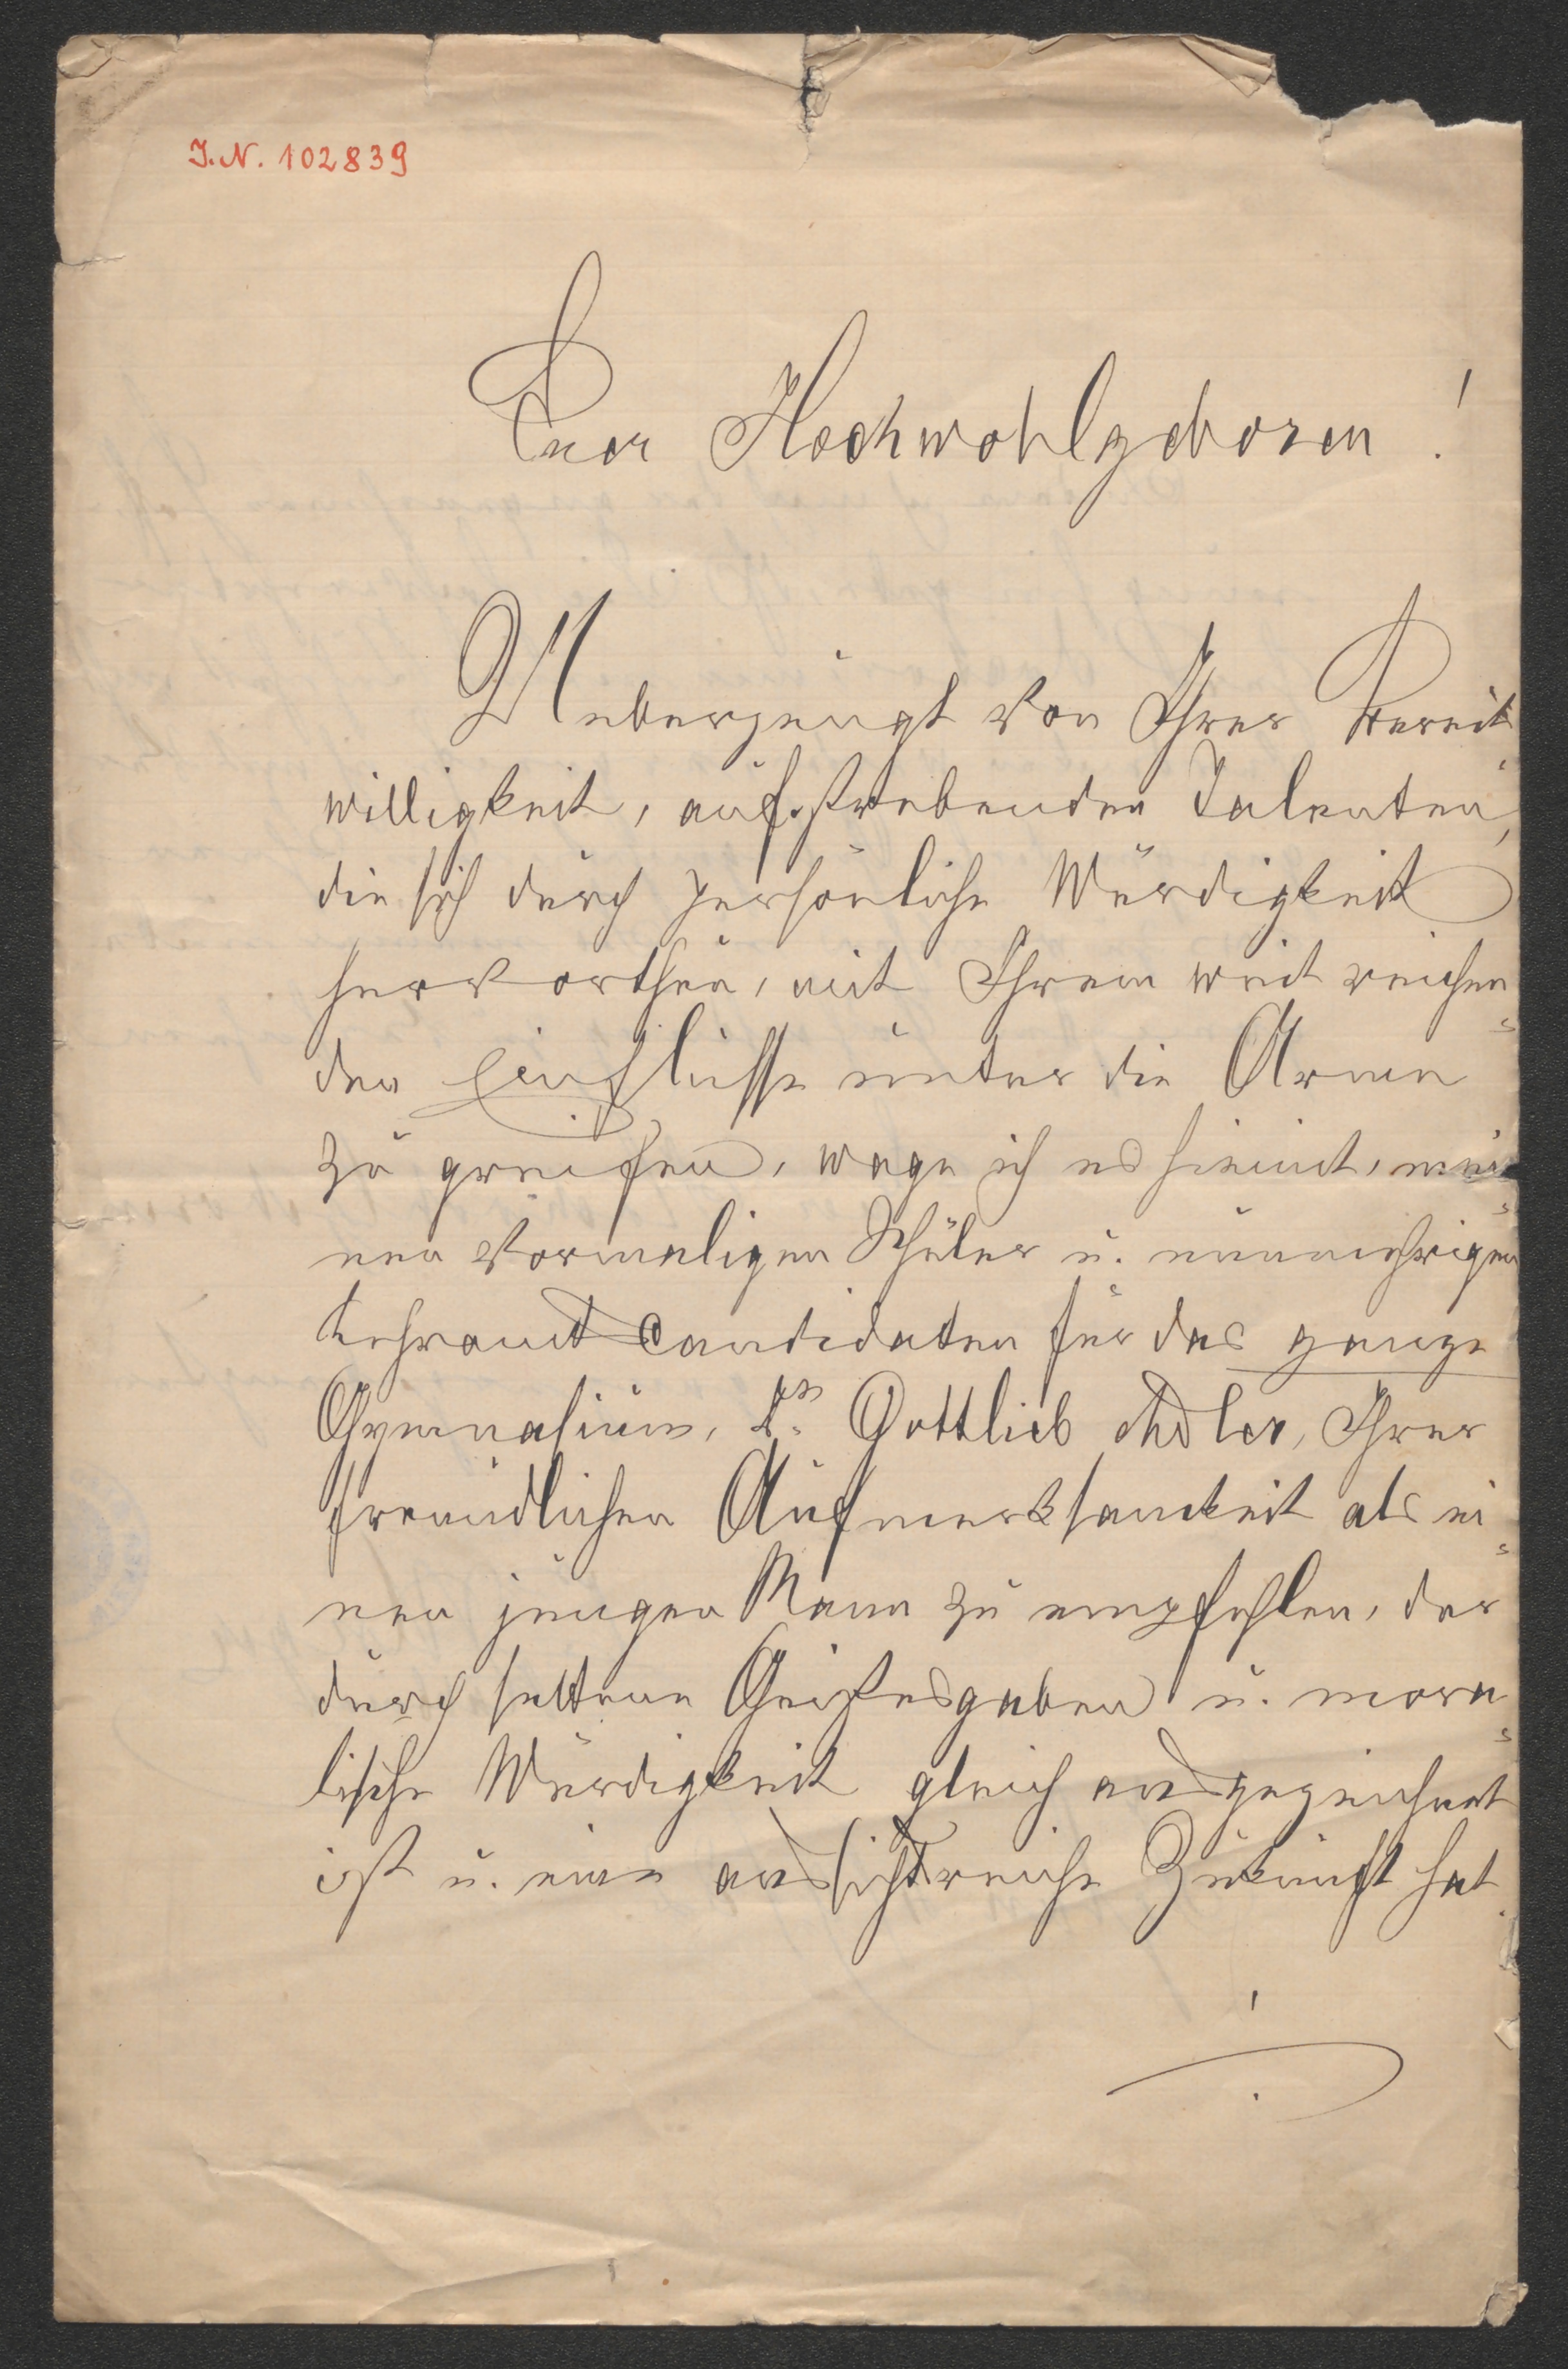 I.N. 102839
Euer Hochwohlgeboren!
Ueberzeugt von Ihrer Bereit-
willigkeit, aufstrebenden Talenten,
die sich durch persönliche Würdigkeit
hervorthun, mit Ihrem weit reichen-
den Einflusse unter die Arme
zu greifen, wage ich es hiemit, mei-
nen vormaligen Schüler u. nunmehrigen
Lehramtscandidaten für das ganze
Gymnasium, Dr. Gottlieb Adler, Ihrer
freundlichen Aufmerksamkeit als ei-
nen jungen Mann zu empfehlen, der
durch seltene Geistesgaben u. mora-
lische Würdigkeit gleich ausgezeichnet
ist u. eine aussichtsreiche Zukunft hat.